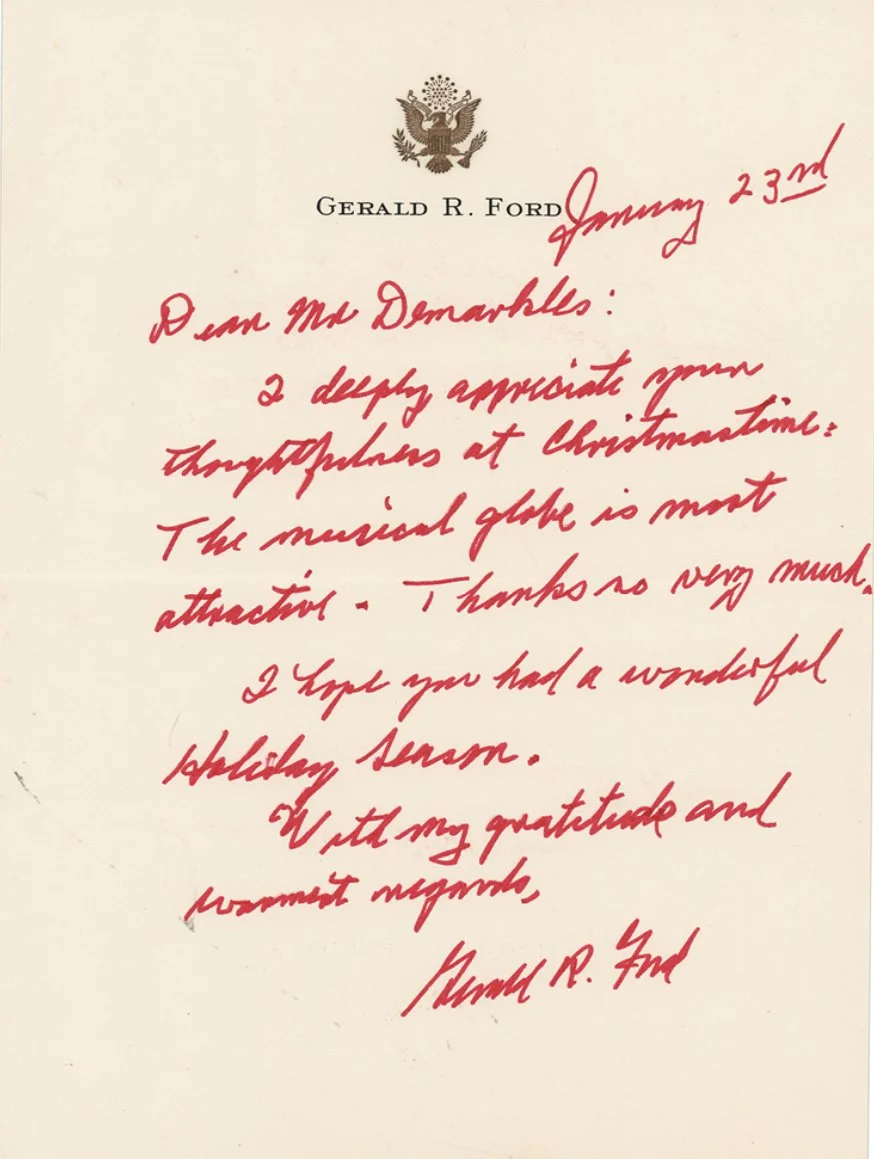 GERALD R. FORD
January 23rd
Dear Mr Demarkles:
I deeply appreciate your
thoughtfulness at Christmastime.
The musical globe is most
attractive. Thanks so very much.
I hope you had a wonderful
Holiday Season.
With my gratitude and
warmest regards,
Gerald R. Ford